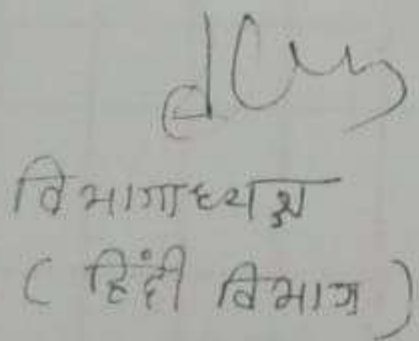 विभागाध्यक्ष
( हिंदी विभाग )